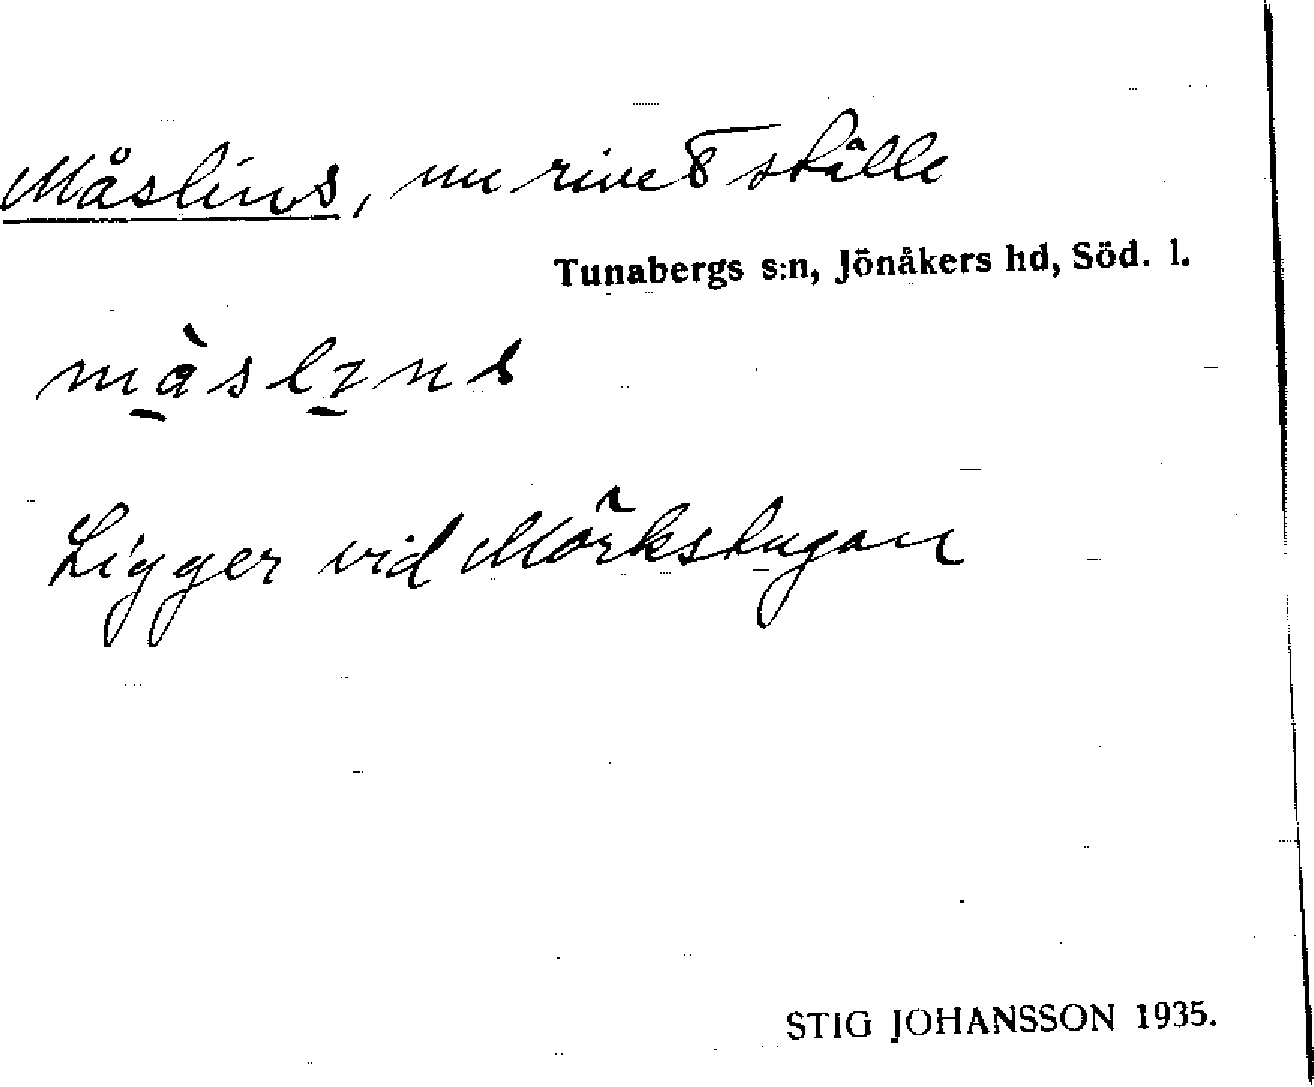 Måslins, nu rivet ställe
Tunabergs s:n, Jönåkers hd, Söd. l.
Ligger vid Mörkstugan
STIG JOHANSSON 1935.